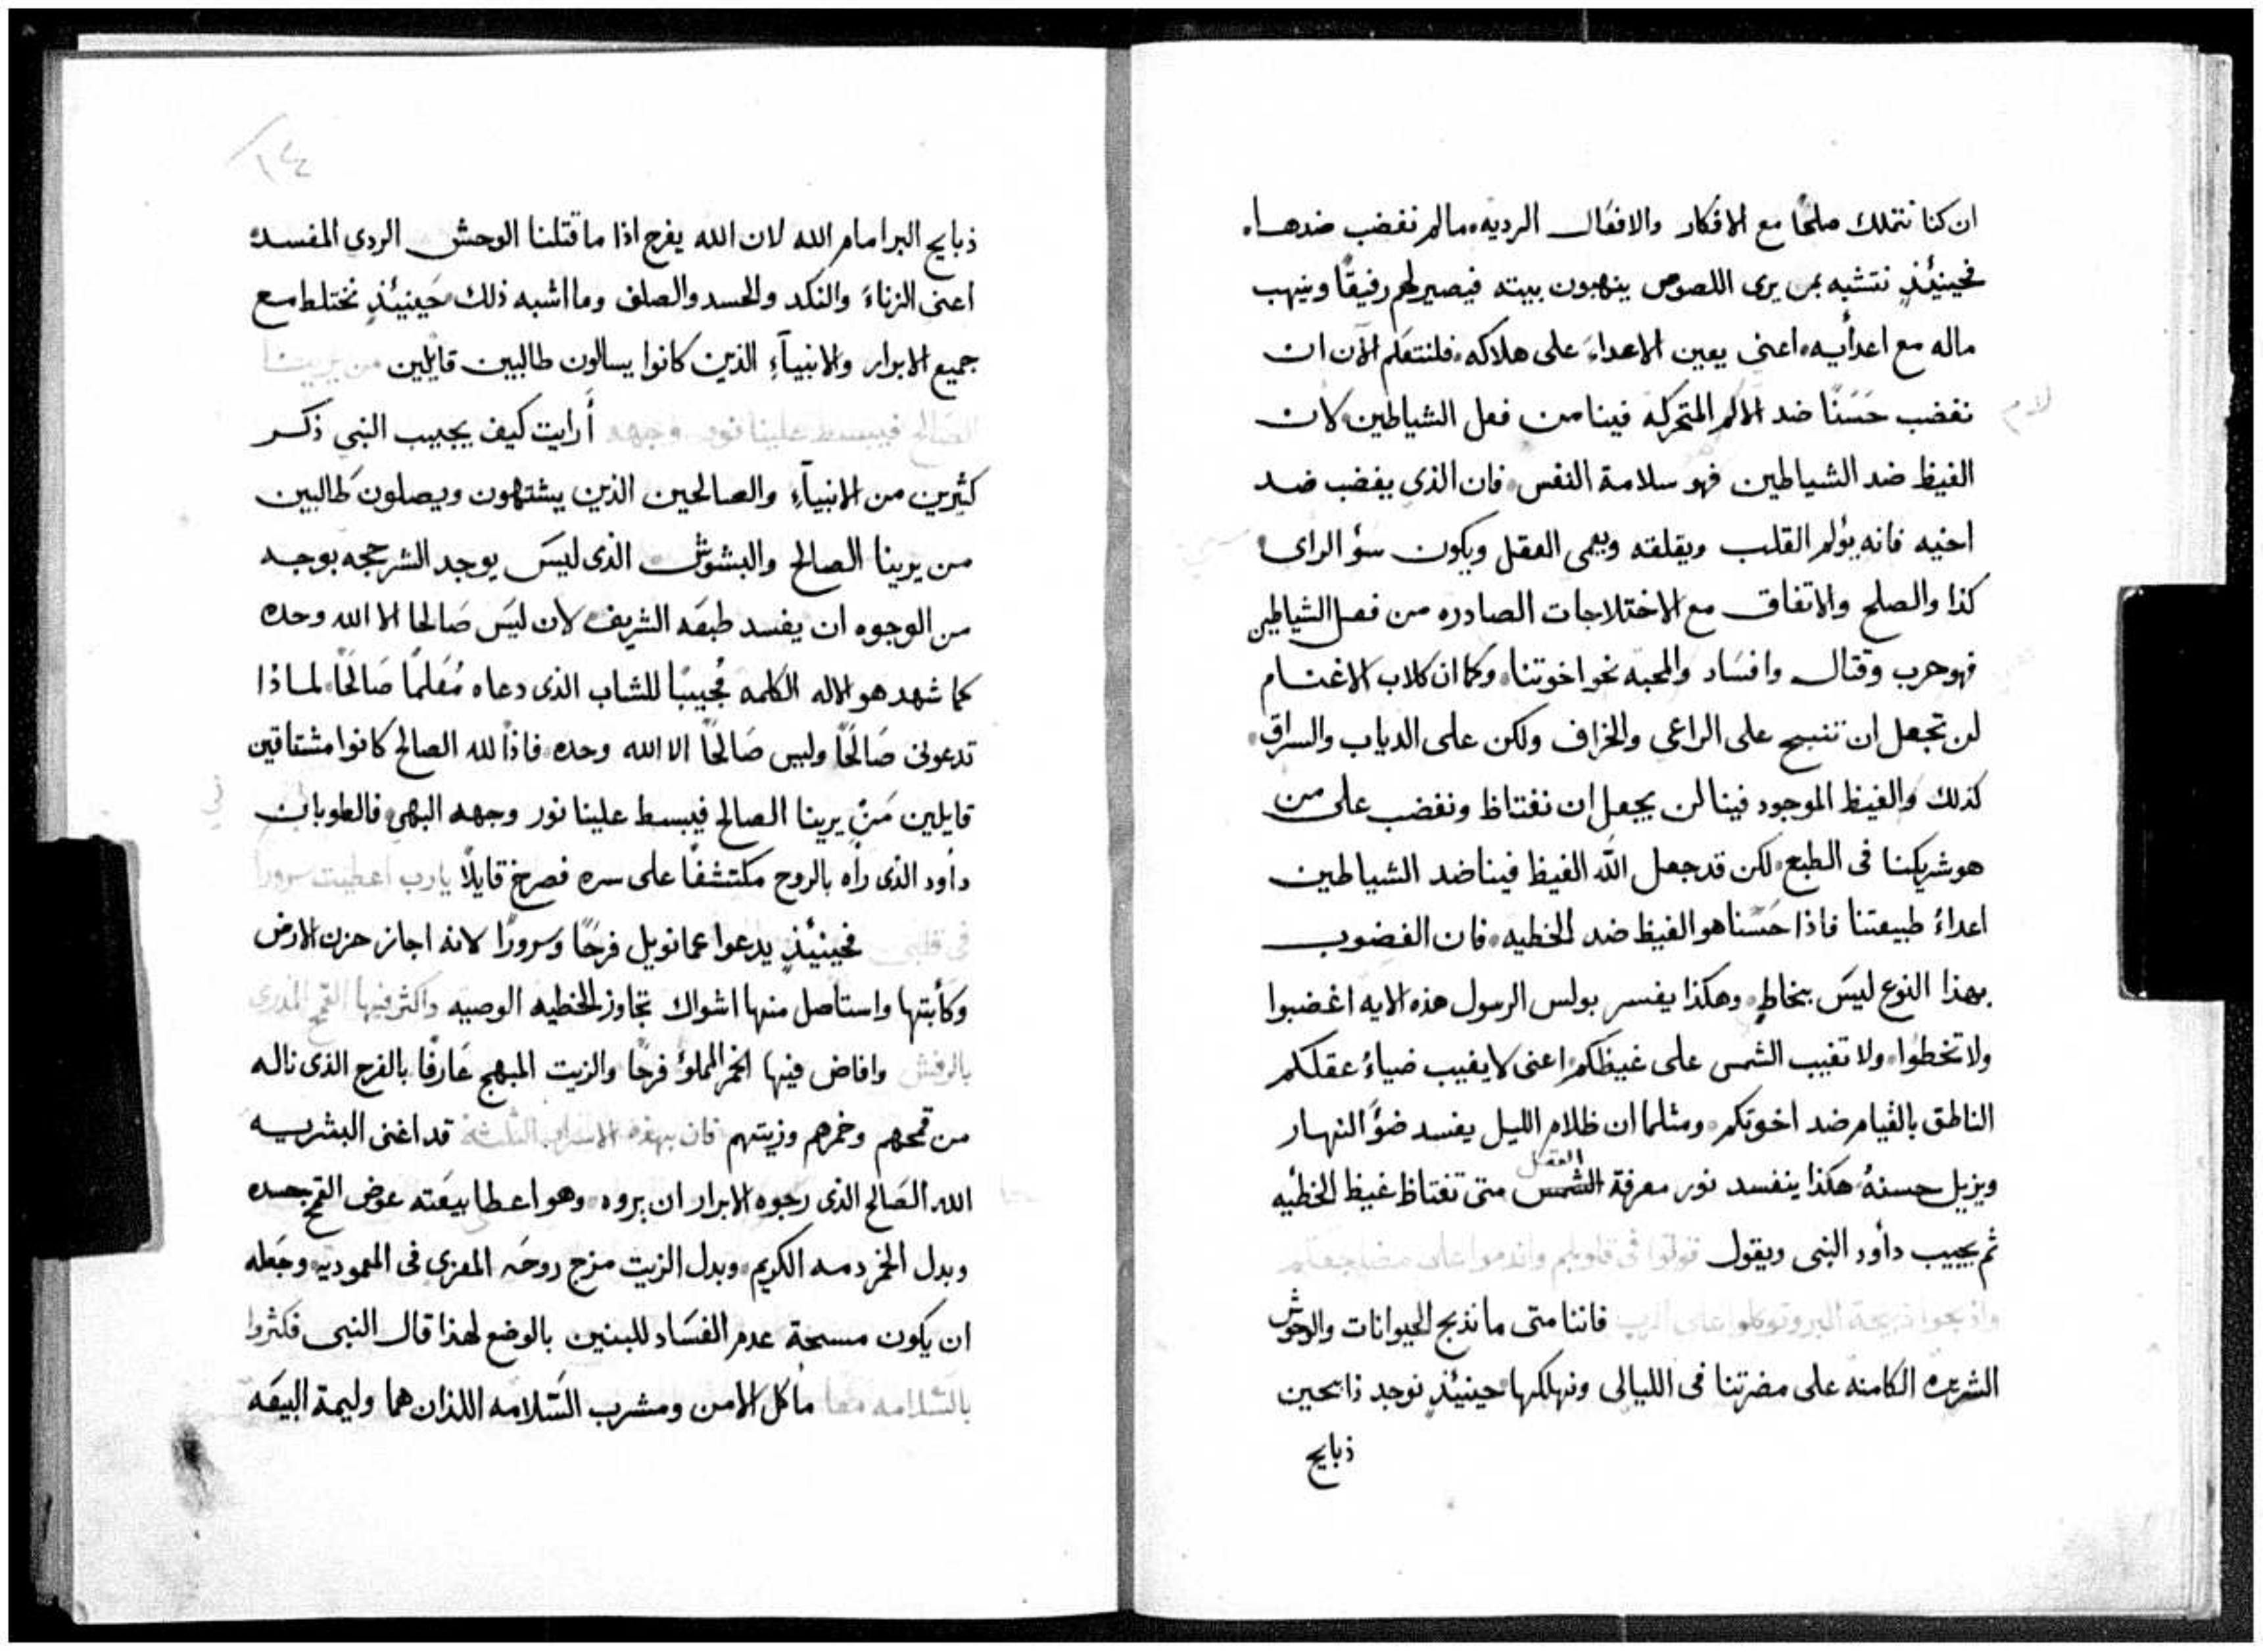 ان كنا نتملك صلحًا مع الافكار والافعال الرديه، مالم نغضب ضدها.
فحينيئذٍ نتشبه بمن يرى اللصوص ينهبون بيته فيصير لهم رفيقًا وينهب
ماله مع اعدأيه، اعنى يعين الاعداءَ على هلاكه، فلنتعلم الآن ان
نغضب حَسَنًا ضد الالام المتحركه فينا من فعل الشياطين، لان
الغيظ ضد الشياطين فهو سلامة النفس، فان الذي يغضب ضد
اخيه فانه يؤلم القلب ويقلقه ويعمى العقل ويكون سؤ الراى،
كذا والصلح والاتفاق مع الاختلاجات الصادره من فعل الشياطين
فهو حرب وقتال وافسَاد والمحبه نحو اخوتنا، وكما ان كلاب الاغنام
لن تجعل ان تنبح على الراعى والخراف ولكن على الدياب والسراق،
كذلك والغيظ الموجود فينا لن يجعل ان نغتاظ ونغضب على من
هو شريكنا فى الطبع، لكن قد جعل الله الغيظ فينا ضد الشياطين
اعداءُ طبيعتنا فاذا حَسَنا هو الغيظ ضد الخطيه، فان الغضوب
بهذا النوع ليسَ بخاطٍ، وهكذا يفسر بولس الرسول هذه الايه اغضبوا
ولا تخطوا، ولا تغيب الشمس على غيظكم، اعنى لا يغيب ضياءُ عقلكم
الناطق بالقيام ضد اخوتكم، ومثلما ان ظلام الليل يفسد ضؤَ النهار
العقل
ويزيل حسنهُ، هكذا ينفسد نور معرفة الشمس متى تغتاظ غيظ الخطيه
ثم يجيب دأود النبى ويقول قولوا فى قلوبكم واندموا على مضاجعكم
واذبحوا ذبيحة البر وتوكلوا على الرب فاننا متى ما نذبح الحيوانات والوحوش
الشريره الكامنه على مضرتنا فى الليالى ونهلكها، حينيئذٍ نوجد ذابحين
ذبايح
١٤
ذبايح البر امام الله لان الله يفرح اذا ما قتلنا الوحش الردى المفسد،
اعنى الزناءَ والنكد والحسد والصلف وما اشبه ذلك، حَينيئذٍ نختلط مع
جميع الابرار والانبيآءِ الذين كانوا يسالون طالبين قايلين من يرينا
الصَالح فيبسط علينا نور وجهه أرايت كيف يجيب النبى ذكر
كثيرين من الانبيآءِ والصالحين الذين يشتهون ويصلون طالبين
من يرينا الصالح والبشوش الذى ليسَ يوجد الشر حجه بوجه
من الوجوه ان يفسد طبعَه الشريف، لان ليسَ صَالحا الا الله وحده
كما شهد هو الاله الكلمه مُجيبًا للشاب الذى دعاه مُعَلمًا صَالحًا، لماذا
تدعونى صَالحًا وليس صَالحًا الا الله وحده، فاذًا لله الصالح كانوا مشتاقين
قايلين مَنْ يرينا الصالح فيبسط علينا نور وجهه البهى، فالطوبان
دأود الذى رأه بالروح مكتشفًا على سره فصرخ قايلًا يارب اعطيت سرورا
فى قلبى فحينيئذٍ يدعوا عمانويل فرحًا وسرورًا لانه اجاز حزن الارض
وكأبتها واستاصل منها اشواك تجاوز الخطيه الوصيه واكثر فيها القمح المذرى
بالرفش وافاض فيها الخمر المملؤ فرحًا والزيت المبهج عَارفًا بالفرح الذى ناله
من قمحهم وخمرهم وزيتهم فان بهذه الاسرار الثلثه قد اغنى البشريه
الله الصَالح الذى رجوه الابرار ان يروه، وهو اعطا بيعَته عوض القمح جسده
وبدل الخمر دمه الكريم، وبدل الزيت مزج روحَه المعزى فى المعموديه، وجَعله
ان يكون مسحة عدم الفسَاد للبنين بالوضع لهذا قال النبى فكثروا
بالسَّلامه معا مأكل الامن ومشرب السَّلامه اللذان هما وليمة البيعَه